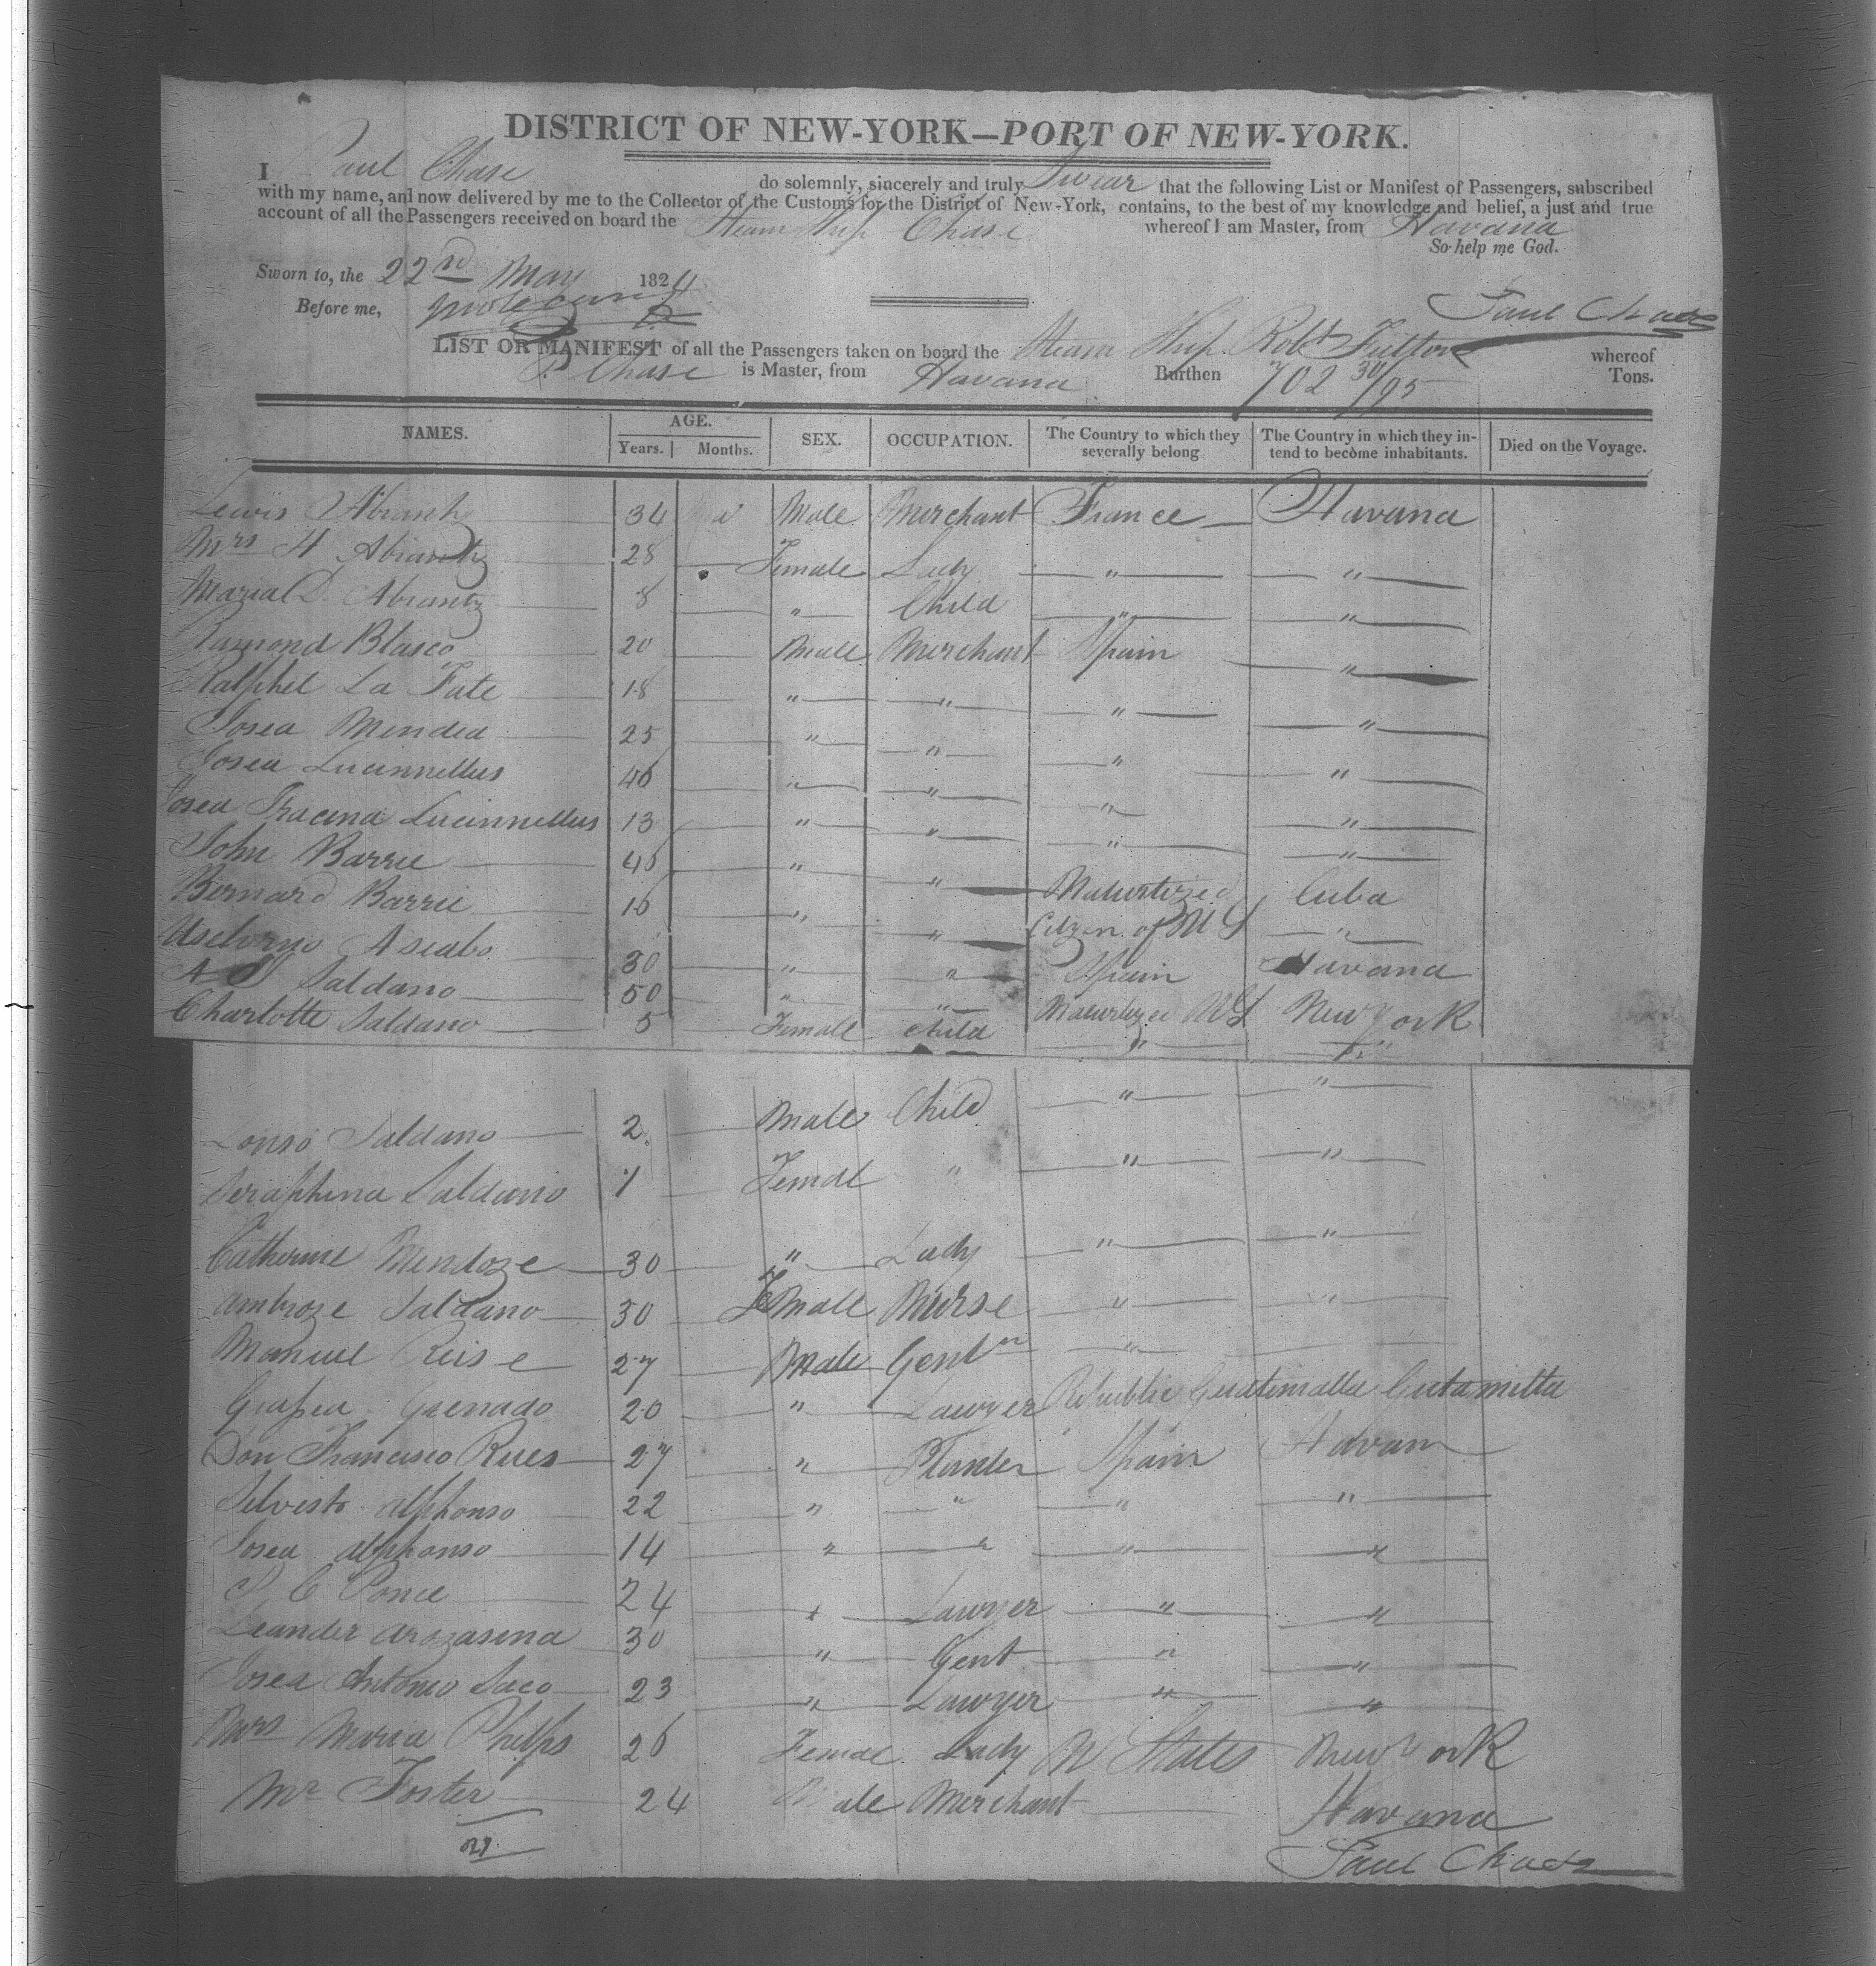 DISTRICT OF NEW-YORK—PORT OF NEW-YORK.
I Paul Chase do solemnly, sincerely and truly Swear that the following List or Manifest of Passengers, subscribed
with my name, and now delivered by me to the Collector of the Customs for the District of New-York, contains, to the best of my knowledge and belief, a just and true
account of all the Passengers received on board the Steam Ship Chase whereof I am Master, from Havana
So help me God.
Sworn to, the 22nd May 1824
Before me,
Paul Chase
LIST OR MANIFEST of all the Passengers taken on board the Steam Ship Robt Fulton whereof
P Chase is Master, from Havana Burthen 702 30/95 Tons.
NAMES. AGE. Years. Months. SEX. OCCUPATION. The Country to which they severally belong The Country in which they intend to become inhabitants. Died on the Voyage.
Lewis Abrantz 34 Male Merchant France Havana
Mrs H Abrantz 28 Female Lady " "
Maria D. Abrantz 8 " Child " "
Ramond Blasco 20 Male Merchant Spain "
Ralphel La Fate 18 " " " "
Josea Mendea 25 " " " "
Josea Lucinnellus 46 " " " "
Josea Tracina Lucinnellus 13 " " " "
John Barrie 46 " " " "
Bernard Barrie 16 " " Naturlized Citizn of U S Cuba
Aseabo 30 " " Spain Havana
A S Saldano 50 " " Naturlized US New York
Charlotte Saldano 5 Female Child " "
Lonso Saldano 2 Male Child " "
Seraphina Saldano 7 Femal " " "
Catherine Mendoze 30 " Lady " "
Ambroze Saldano 30 Female Nurse " "
Manuel Reise 27 Male Gentn "
Grenado 20 " Lawyer Republic Guatimalla Gutamilla
Don Francisco Rues 27 " Planter Spain Havan
Silvestr Alphonso 22 " " " "
Josea Alphonso 14 " " " "
P C Ponce 24 " Lawyer " "
Leander Arozasena 30 " Gent " "
Josea Antonio Saco 23 " Lawyer " "
Mrs Maria Phelps 26 Femal Lady U States New York
Mr Foster 24 Male Merchant Havana
Paul Chase